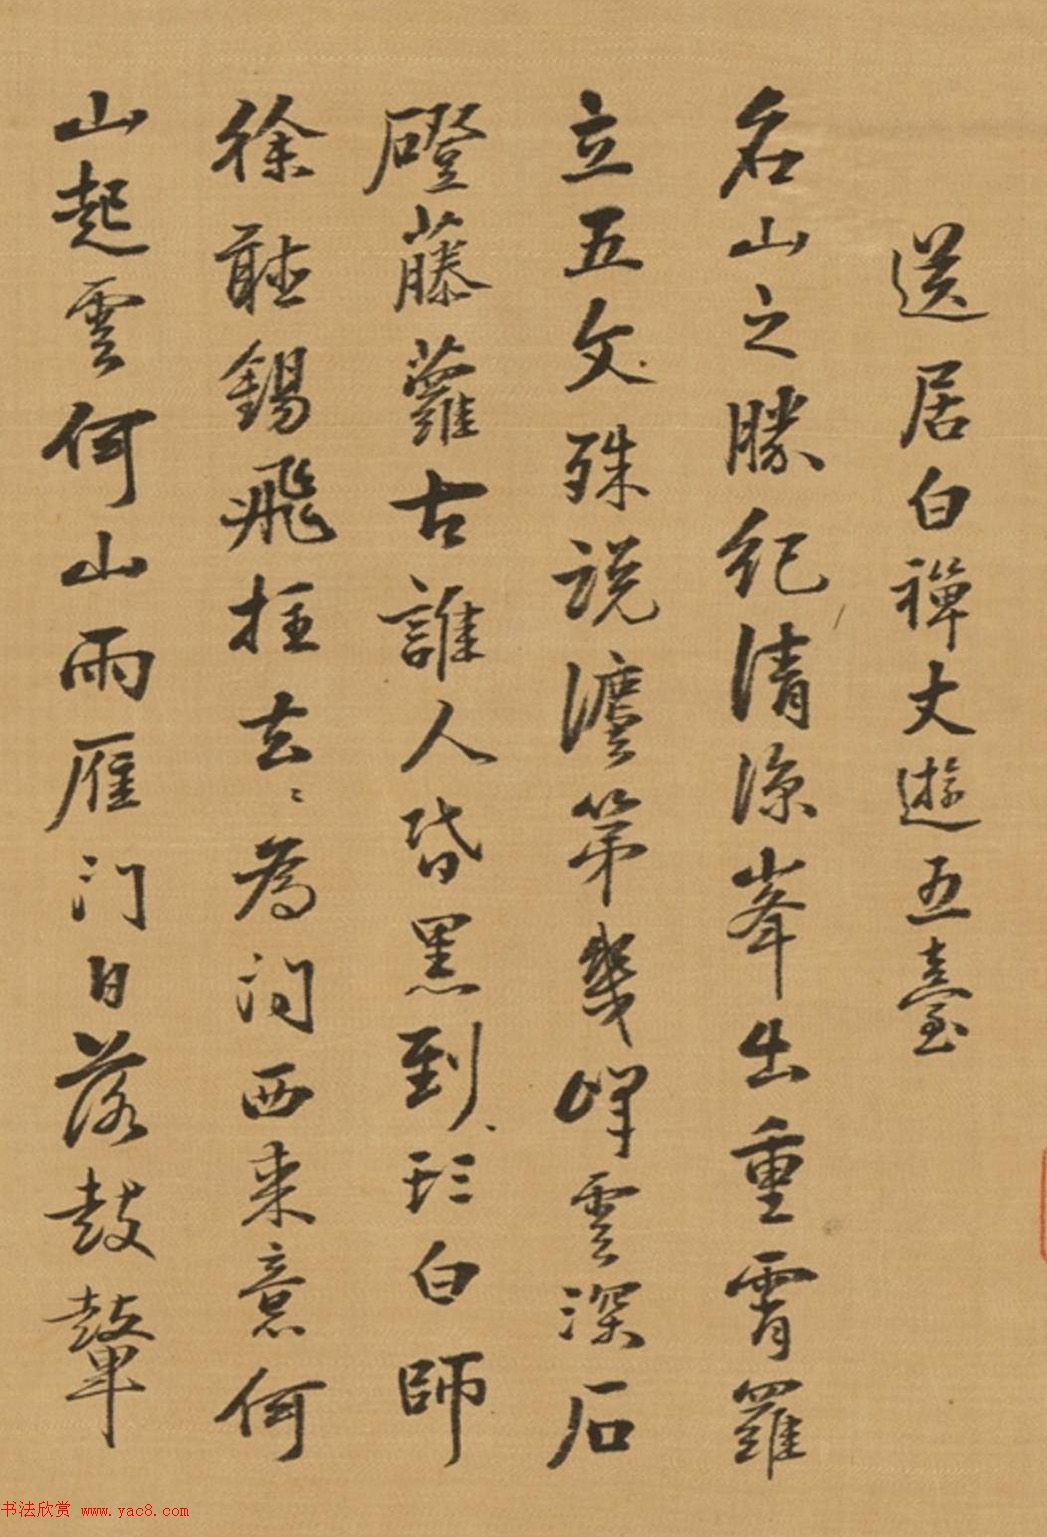 送居白禪丈遊五臺
名山之勝紀清涼峯出重霄羅
立五文殊說澹第幾峰雲深石
磴藤蘿古誰人昏黑到居白師
徐聽錫飛拄去〻為問西來意何
山起雲何山雨雁門日落鼓鼙
书法欣赏 www.yac8.com